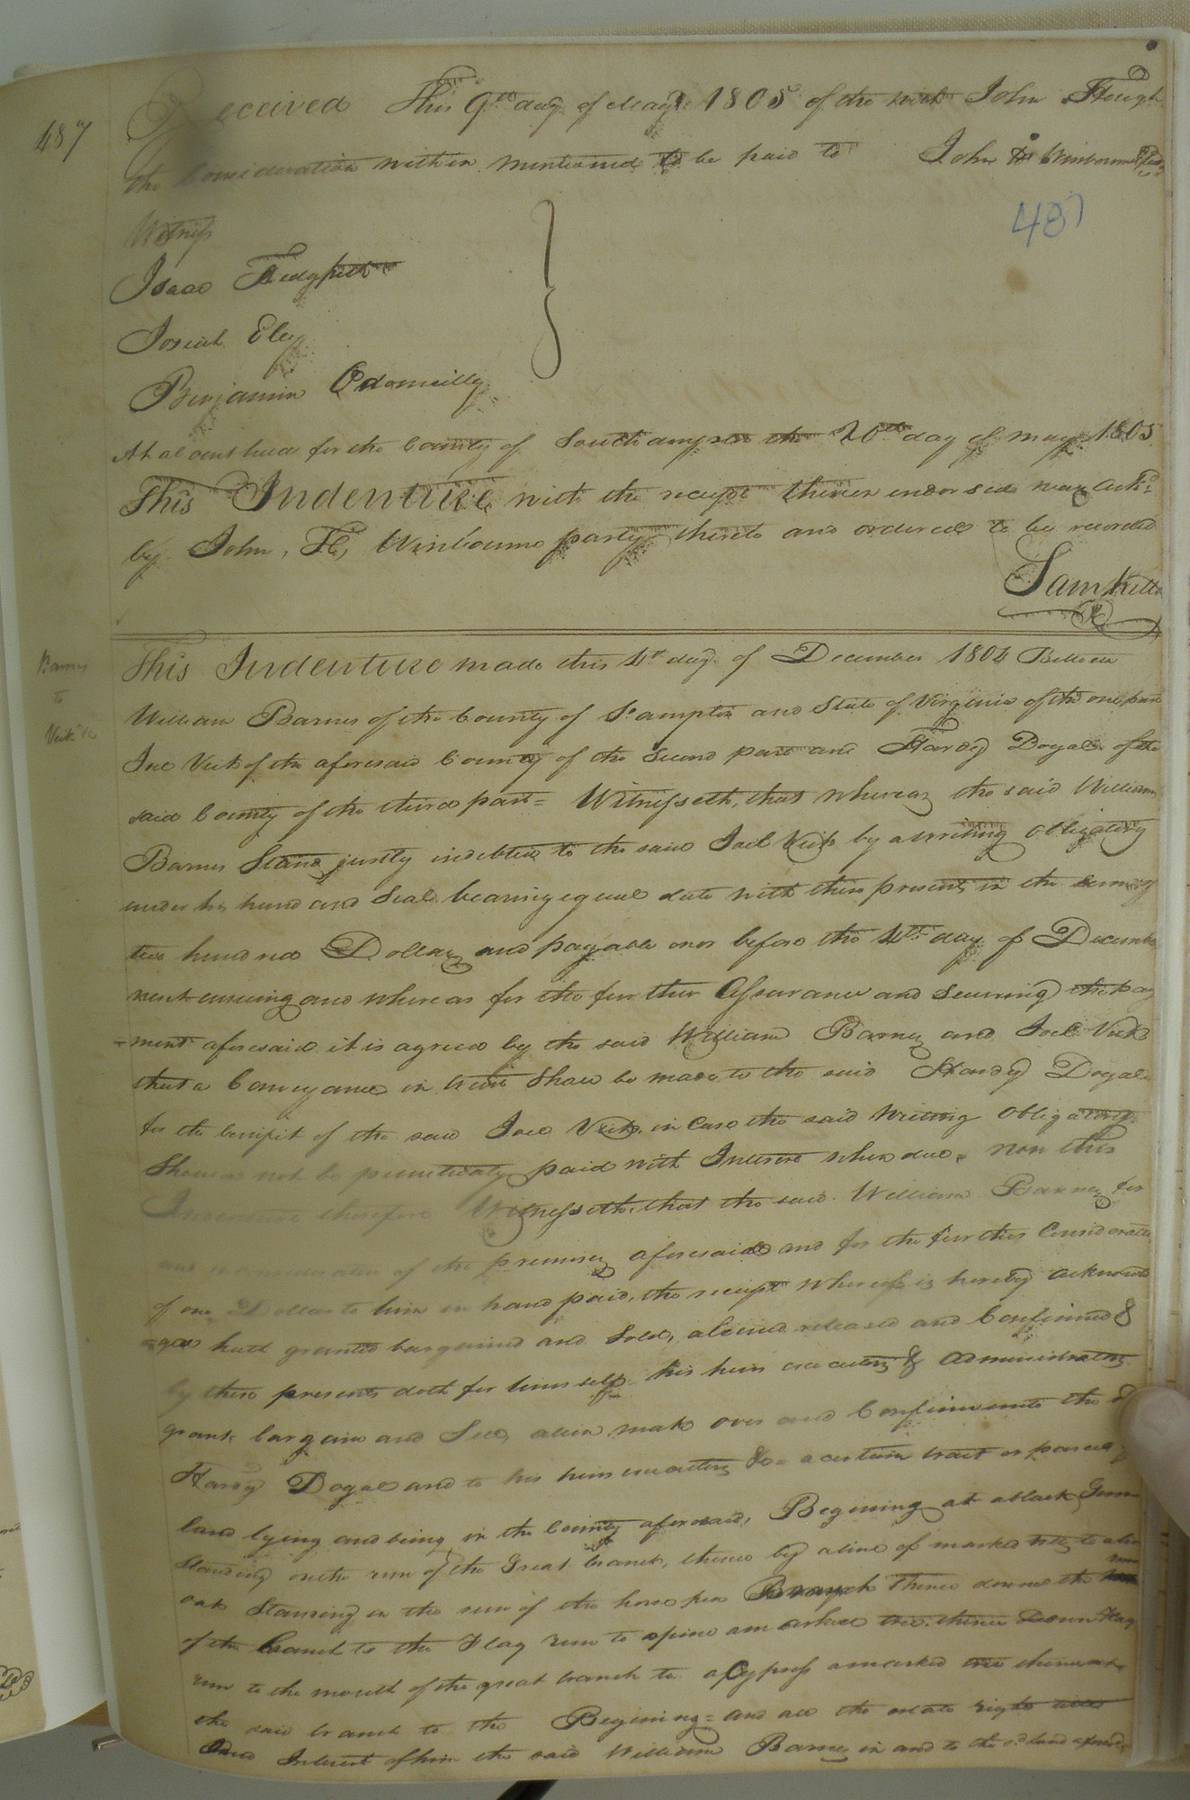 487
Received This 9th day of May 1805 of the with John
the Consideration within mentioned to be paid to John H Winbourne
487
Witness
Isaac Hedgpeth
Josiah Eley
Benjamin Odomeilly
At a Court held for the County of Southampton the 20th day of may 1805
This Indenture with the receipt thereon endorsed was Ackd
by John, H, Winbourne party thereto and ordered to be recorded
Sam Kello
Barnes
to
Vick &c
This Indenture made this 4th day of December 1804 Between
William Barnes of the County of So.ampton and State of Virginia of the one part
Joel Vick of the aforesaid County of the Second part and Hardy Doyal of the
said County of the third part = Witnesseth, that whereas the said William
Barnes Stand justly indebted to the said Joel Vick by a writing obligatory
under his hand and Seal bearing equal date with these presents in the sum of
two hundred Dollars and payable on or before the 4th day of Decembr
next ensuing and whereas for the further Assurance and Securing the pay
-ment aforesaid it is agreed by the said William Barnes and Joel Vick
that a Conveyance in trust Shall be made to the said Hardy Doyal
for the benifit of the said Joel Vick in Case the said writing obligatory
Should not be punctualy paid with Interest when due. now this
Indenture therefore Witnesseth, that the said William Barnes for
and in consideration of the premises aforesaid and for the further Consideration
of one Dollar to him in hand paid, the receipt whereof is hereby acknowled
-ged hath granted bargained and Sold, aliened released and Confirmed &
by these presents doth for himself his heirs executors & administrators
grant bargain and Sell, alien make over and Confirm unto the sd
Hardy Doyal and to his heirs executors &c a certain tract or parcel of
land lying and being in the County aforesaid, Begining at a black Gum
Standing on the run of the Great branch, thence by a line of marked trees to a
oak Standing in the run of the horse pen Branch Thence down the run
of the branch to the Flag run to a pine a marked tree. thence down Flag
run to the mouth of the great branch to a Cypress a marked tree thence
the said branch to the Begining = and all the estate right title
and Interest of him the said William Barnes in and to the sd land aforesd